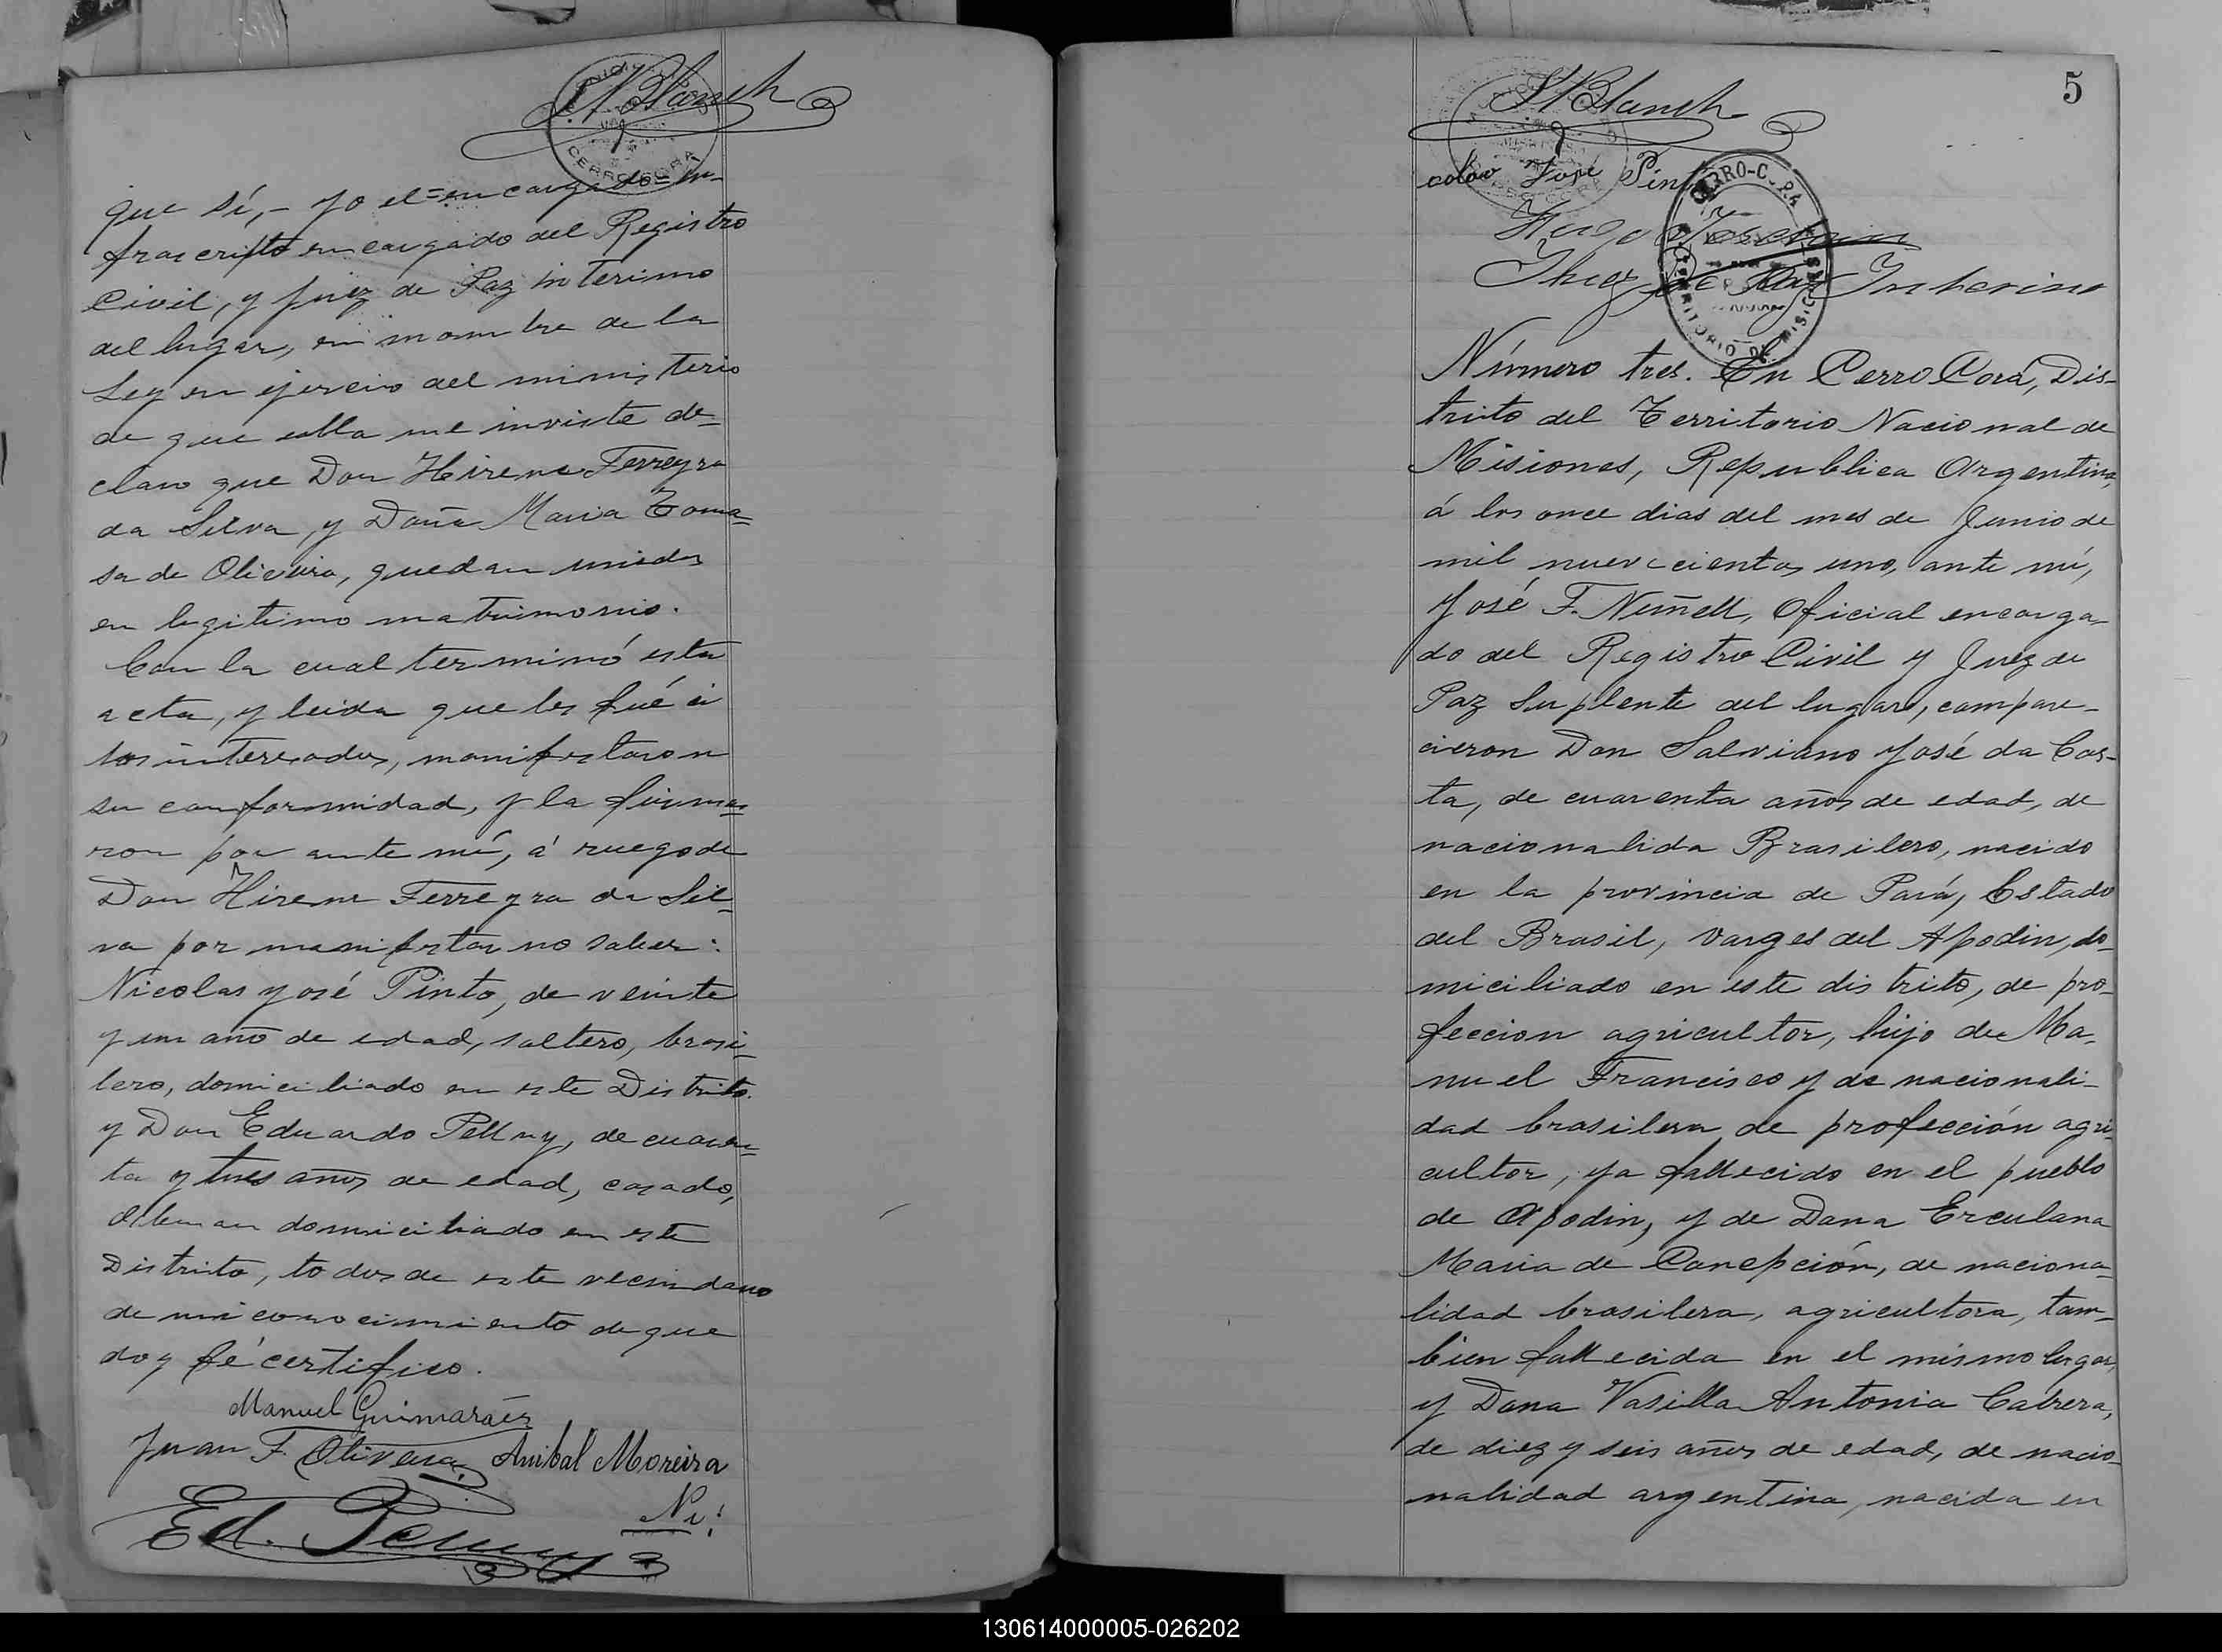 S. N. Blanch
que sí,- yo el=encargado=in-
frascripto encargado del Registro
Civil, y juez de Paz interino
del lugar, en nombre de la
Ley en ejercio del ministerio
de que ella me inviste de=
claro que Don Hirene Ferreyra
da Silva, y Doña Maria Toma=
sa de Oliveira, quedan unidos
en legitimo matrimonio.
Con la cual terminó esta
acta, y leida que les fué á
los interesados, manifestaron
su conformidad, y la firma=
ron por ante mí, á ruego de
Don Hirene Ferreyra da Sil=
va por manifestar no saber:
Nicolas José Pinto, de veinte
y un año de edad, soltero, brasi=
lero, domiciliado en este Distrito.
y Don Eduardo Pellny, de cuaren=
ta y tres años de edad, casado,
Aleman domiciliado en este
Distrito, todos de este vecindario
de mi conocimiento de que
doy fé certifico.
Manuel Guimaráes
Juan F. Oliveira Anibal Moreira
Ni:
Ed.
S. N. Blanch
5
colao José Pinto
CERRO-CORA
TERRITORIO DE MISIONES
Juez de Paz Interino
Número tres. En Cerro Corá, Dis-
trito del Territorio Nacional de
Misiones, Republica Argentina,
á los once dias del mes de Junio de
mil nuevecientos uno, ante mí,
José F. Nuñell, Oficial encarga-
do del Registro Civil y Juez de
Paz Suplente del lugar, compare-
cieron Don Salviano José da Cos-
ta, de cuarenta años de edad, de
nacionalida Brasilero, nacido
en la provincia de Pará, Estado
del Brasil, Varges del Apodin, do-
miciliado en este distrito, de pro-
feccion agricultor, hijo de Ma-
nuel Francisco y de nacionali-
dad brasilera de profección agri-
cultor, ya fallecido en el pueblo
de Apodin, y de Dana Erculana
Maria de Concepción, de naciona-
lidad brasilera, agricultora, tam-
bien fallecida en el mismo lugar,
y Dona Vasilla Antonia Cabrera,
de diez y seis años de edad, de nacio-
nalidad argentina, nacida en
130614000005-026202